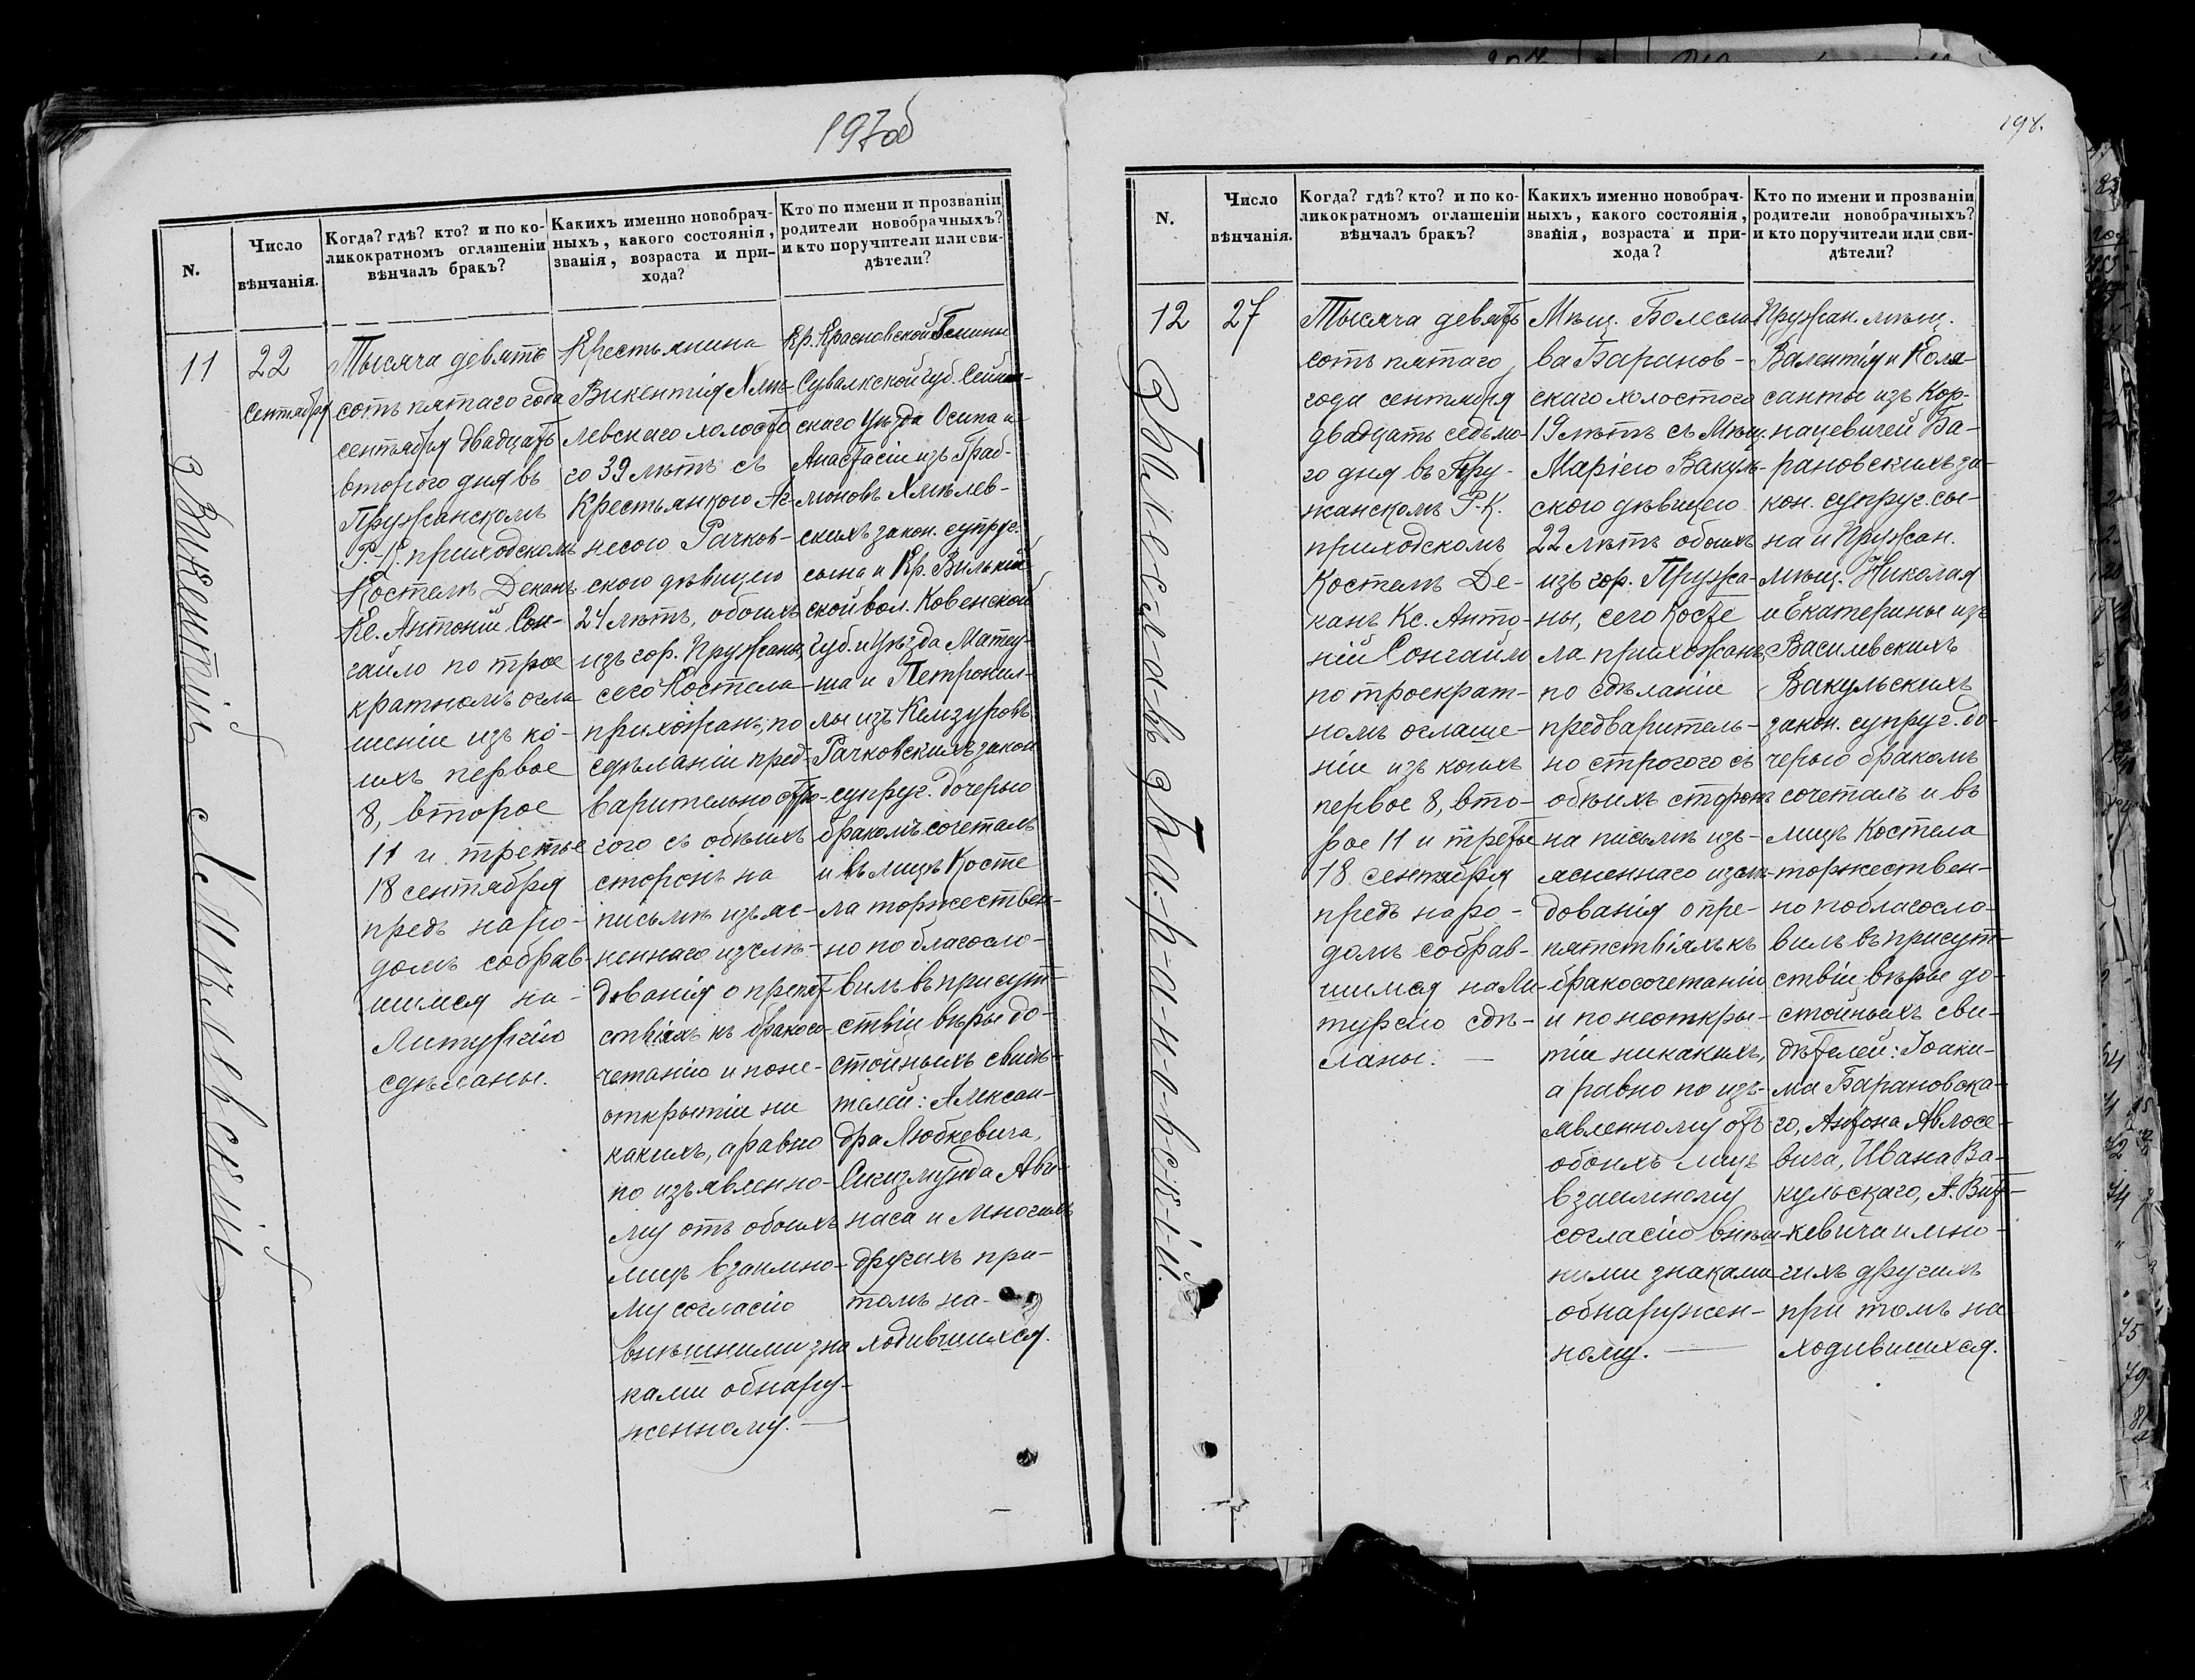 197об
N.
Число
вѣнчанія.
Когда? гдѣ? кто? и по ко-
ликократномъ оглашеніи
вѣнчалъ бракъ?
Какихъ именно новобрач-
ныхъ, какого состоянія,
званія, возраста и при-
хода?
Кто по имени и прозванiи
родители новобрачныхъ?
и кто поручители или сви-
дѣтели?
11
22
сентября
Викентій Хмѣлевскій
Тысяча девять
сотъ пятаго года
сентября двадцать
второго дня въ
Пружанскомъ
Р.-К. приходскомъ
Костелѣ Деканъ
Кс. Антоній Сон-
гайло по трое
кратномъ огла
шеніи изъ ко-
ихъ первое
8, второе
11 и третье
18 сентября
предъ наро-
домъ собрав-
шимся на
Литургію
сдѣланы.
Крестьянина
Викентія Хмѣ-
левскаго холосто
го 39 лѣтъ съ
Крестьянкою Аг-
несою Рачков-
скою дѣвицею
24 лѣтъ, обоихъ
изъ гор. Пружаны,
сего Костела
прихожанъ, по
сдѣланіи пред-
варительно стро-
гого съ обѣихъ
сторонъ на
письмѣ изъяс-
неннаго изслѣ-
дованія о препят
ствіяхъ къ бракосо-
четанію и поне-
открытіи ни
какихъ, а равно
по изъявленно-
му отъ обоихъ
лицъ взаимно-
му согласію
внѣшними зна
ками обнару-
женному. —
Кр. Красновской Гмины
Сувалкской губ. Сейнен-
скаго Уѣзда Осипа и
Анастасіи изъ Граб-
люновъ Хмѣлев-
скихъ закон. супруг.
сына и Кр. Вилькій
ской вол. Ковенской
губ. и Уѣзда Матеу-
ша и Петронил-
лы изъ Кемзуровъ
Рачковскихъ закон
супруг. дочерью
бракомъ сочеталъ
и въ лицѣ Косте
ла торжествен-
но по благосло-
вилъ въ присут-
ствіи вѣры до-
стойныхъ свидѣ-
телей: Алексан-
дра Любкевича,
Сигизмунда Ави-
наса и многихъ
другихъ при-
томъ на-
ходившихся.
198.
N.
Число
вѣнчанія.
Когда? гдѣ? кто? и по ко-
ликократномъ оглашеніи
вѣнчалъ бракъ?
Какихъ именно новобрач-
ныхъ, какого состоянія,
званія, возраста и при-
хода?
Кто по имени и прозваніи
родители новобрачныхъ?
и кто поручители или сви-
дѣтели?
12
27
Болеславъ Барановскій.
Тысяча девять
сотъ пятаго
года сентября
двадцать седьмо-
го дня въ Пру-
жанскомъ Р-К.
приходскомъ
Костелѣ Де-
канъ Кс. Анто-
ній Сонгайло
по троекрат-
номъ оглаше-
ніи изъ коихъ
первое 8, вто-
рое 11 и третье
18 сентября
предъ наро-
домъ собрав-
шимся на Ли-
тургію сдѣ-
ланы. —
Мѣщ. Болесла
ва Баранов-
скаго холостого
19 лѣтъ съ Мѣщ.
Маріею Вакуль-
скою дѣвицею
22 лѣтъ обоихъ
изъ гор. Пружа-
ны, сего Косте
ла прихожанъ
по сдѣланіи
предваритель-
но строгого съ
обѣихъ сторонъ
на письмѣ изъ-
ясненнаго изслѣ-
дованія о пре-
пятствіяхъ къ
бракосочетанію
и по неоткры-
тіи никакихъ,
а равно по изъ-
явленному отъ
обоихъ лицъ
взаимному
согласію внѣш-
ними знаками
обнаружен-
ному. —
Пружан. мѣщ.
Валентія и Коле-
санты изъ Кор-
нацевичей Ба-
рановскихъ за-
кон. супруг. сы-
на и Пружан.
мѣщ. Николая
и Екатерины изъ
Василевскихъ
Вакульскихъ
закон. супруг. до-
черью бракомъ
сочеталъ и въ
лицѣ Костела
торжествен-
но поблагосло-
вилъ въ присут-
ствіи вѣры до-
стойныхъ сви-
дѣтелей: Іоаки-
ма Барановска-
го, Антона Авлосе-
вича, Ивана Ва-
кульскаго, А. Вит-
кевича и мно-
гихъ другихъ
при томъ на
ходившихся.